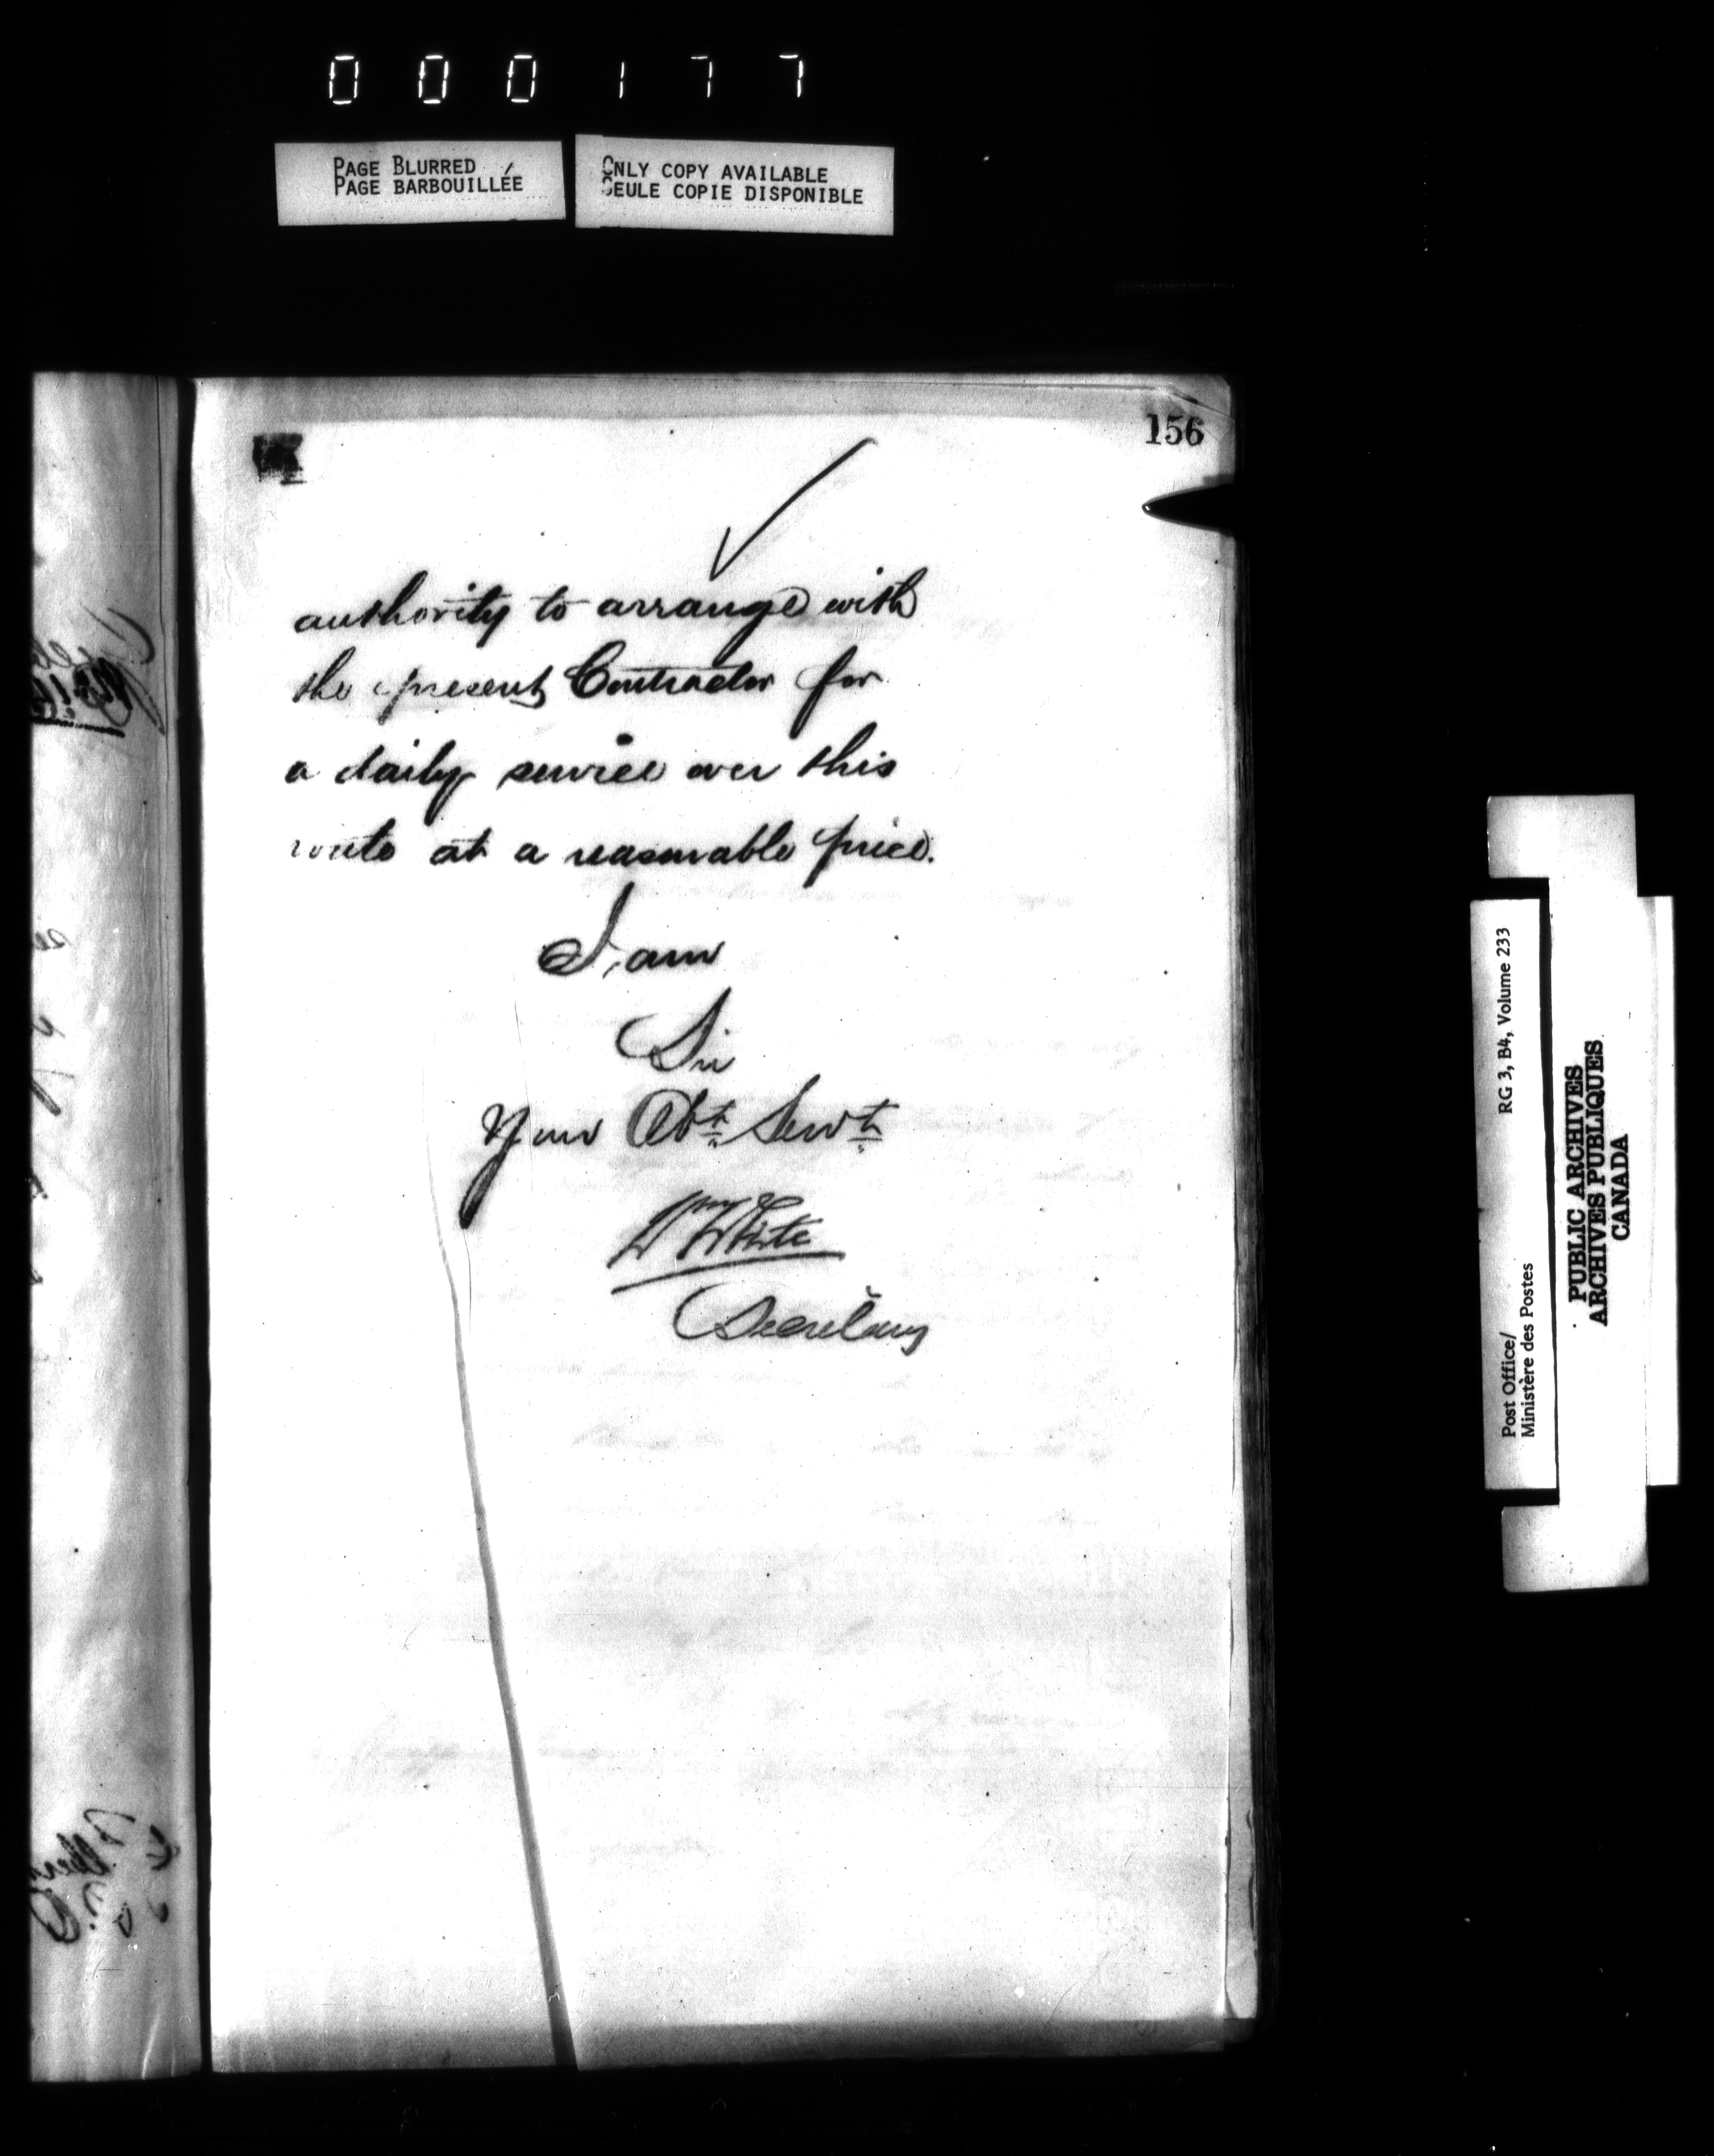 000177
PAGE BLURRED
PAGE BARBOUILLÉE
ONLY COPY AVAILABLE
SEULE COPIE DISPONIBLE
156
authority to arrange with
the present Contractor for
a daily service over this
route at a reasonable price.
I am
Sir
Your Obt Servt
Wm White
Secretary
Post Office/ RG 3, B4, Volume 233
Ministère des Postes
PUBLIC ARCHIVES
ARCHIVES PUBLIQUES
CANADA